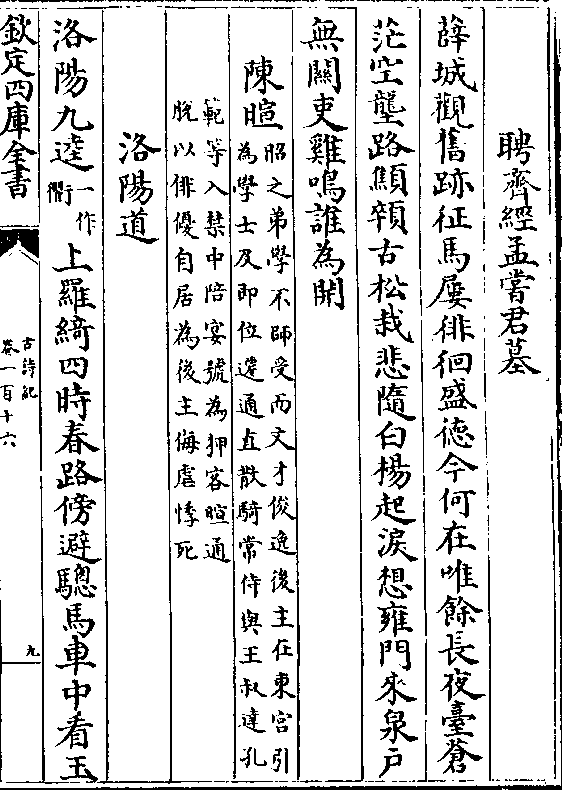 聘齊經孟嘗君墓
薛城觀舊跡征馬屢徘徊盛德今何在唯餘長夜臺蒼
茫空壟路顦顇古松栽悲隨白楊起淚想雍門來泉戶
無關吏雞鳴誰為開
陳暄昭之弟學不師受而文才俊逸後主在東宮引
為學士及即位遷通直散騎常侍與王叔達孔
範等入禁中陪宴號為狎客暄通
脫以俳優自居為後主侮虐悸死
洛陽道
洛陽九逵一作衢上羅綺四時春路傍避驄馬車中看玉
欽定四庫全書
古詩紀
卷一百十六
九